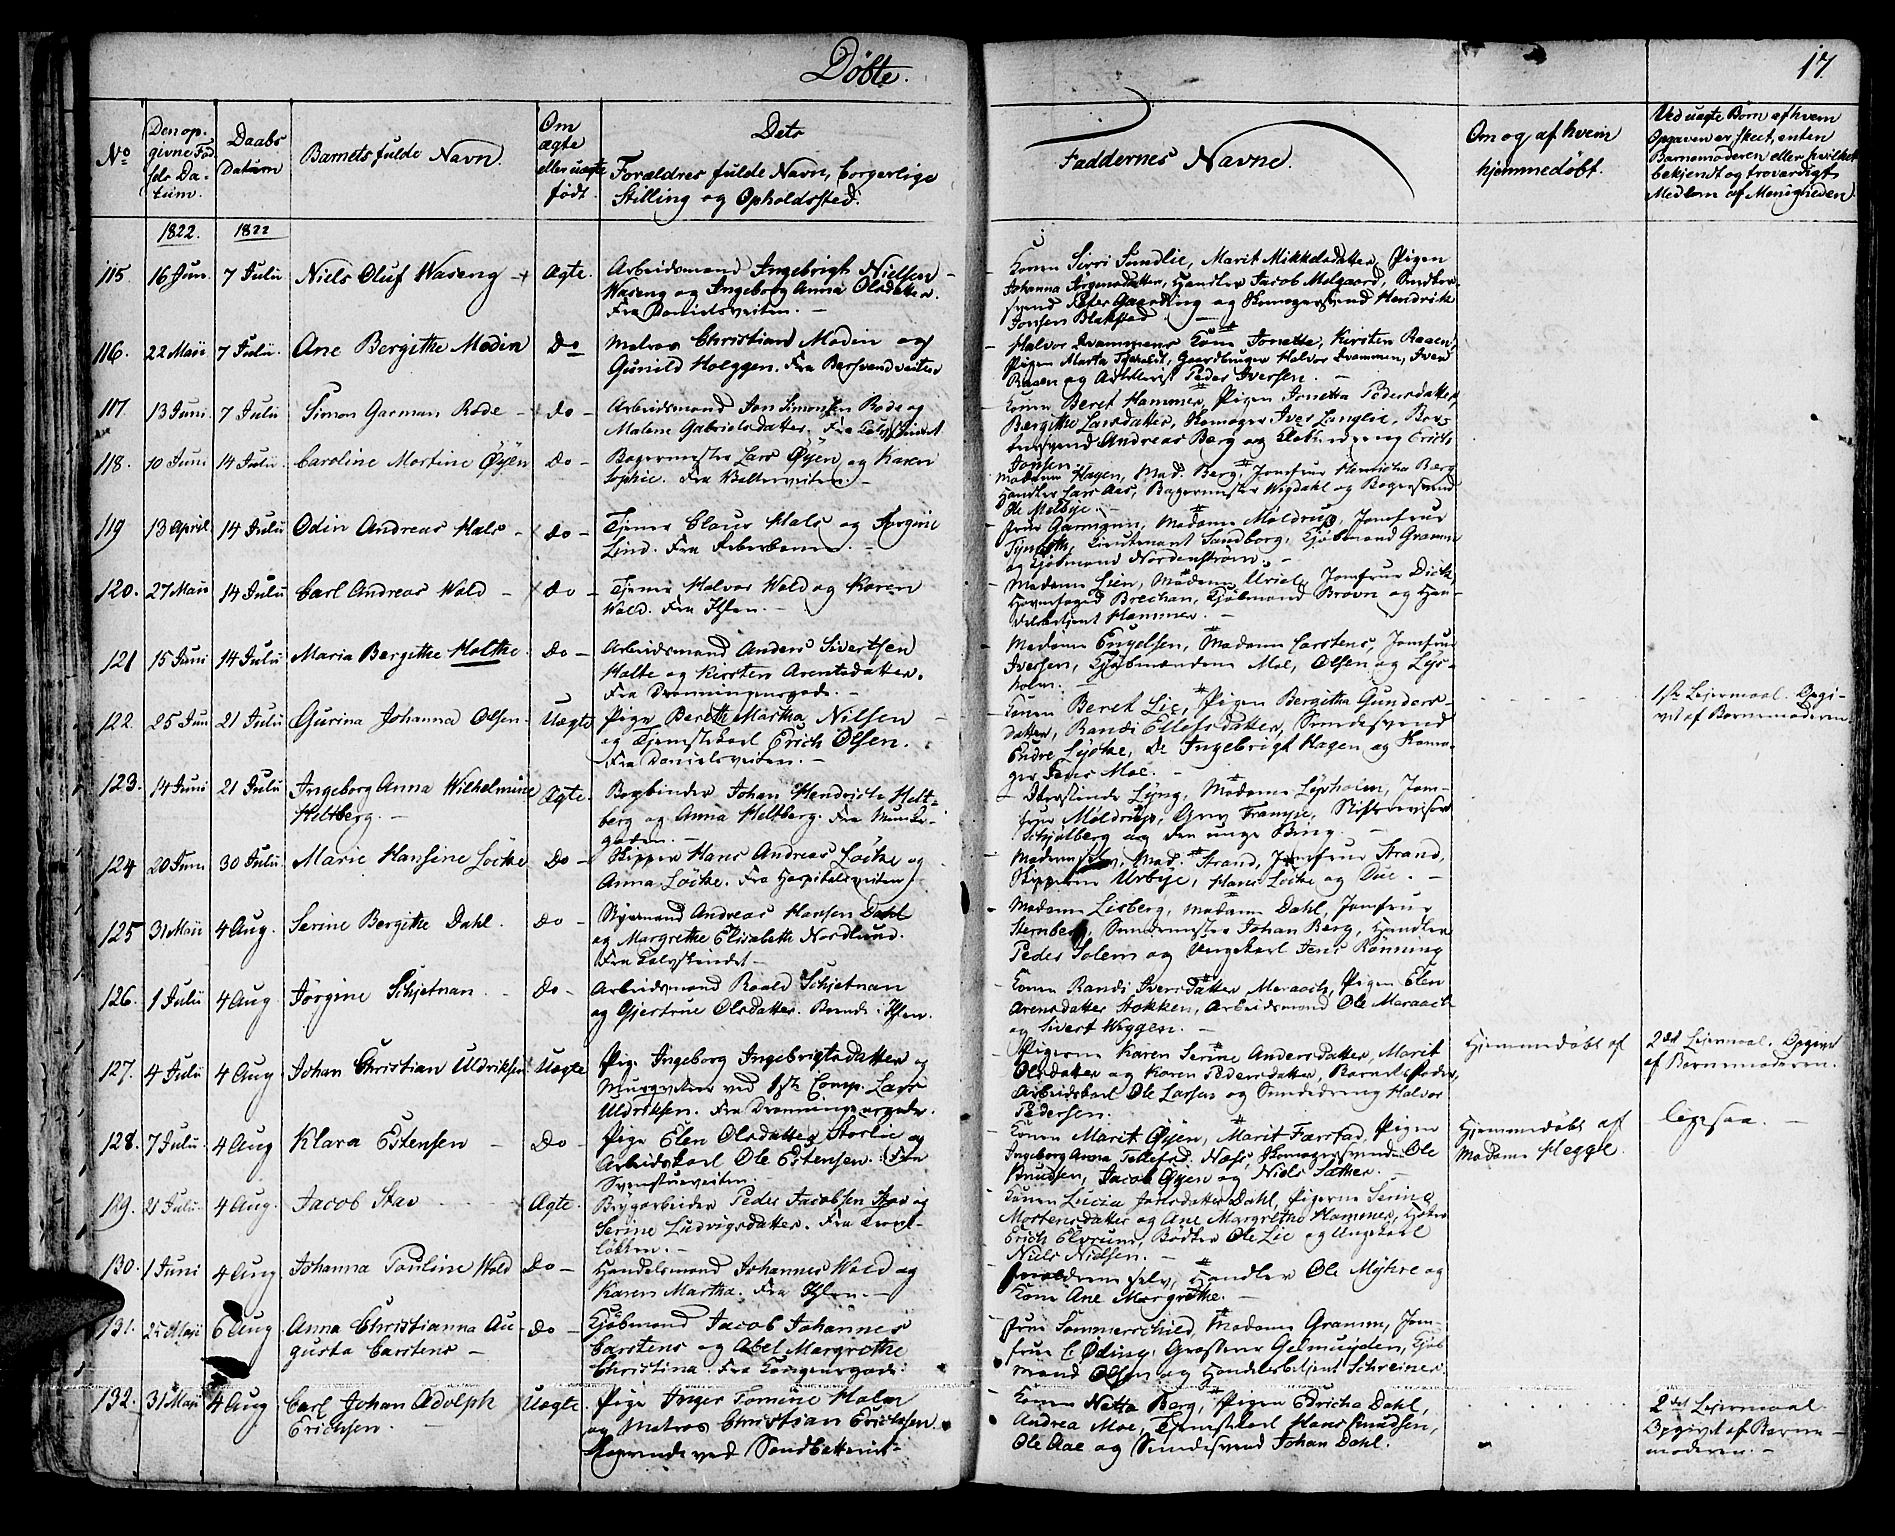 Døbte.
17
No
Den op-
givne Fød-
sels Da-
tum.
Daabs
Datum
Barnets fulde Navn.
Om
ægte
eller uægte
født.
Dets
Forældres fulde Navn, borgerlige
Stilling og Opholdssted.
Faddernes Navne.
Om og af hvem
hjemmedøbt.
Ved uægte Børn af hvem
Opgaven er skeet, enten
Barnemoderen eller hvilket
bekjendt og troværdigt
Medlem af Menigheden
1822. 1822
115 16 Jun. 7 Julii Niels Oluf Waseng Ægte.
Arbeidsmand Ingebrigt Nielsen
Waseng og Ingeborg Anna Olsdatter.
Fra Danielsveiten.
Konen Sirri Sundlie, Marit Mikkelsdatter, Pigen
Johanna Jörgensdatter, Handler Jacob Melgaard,
svend Peter og Skomagersvend Hendrik
Jonsen Blakstad.
116. 22 Maii 7 Julii. Ane Bergithe Modin Do
Matros Christian Modin og
Gunild Holggen. Fra Barsvendveiten
Halvor Krammens Kone Jonette, Kirsten Raaen,
Pigen Marta, Gaardbruger Halvor Krammen, Iver
Raaen og Peder Iversen.
117. 13 Juni 7 Julii Simon Garman Rode Do
Arbeidsmand Jon Simonsen Rode og
Malene Gabrielsdatter. Fra Kalvskindet
Konen Beret Hammer, Pigen Jonetta Pedersdatter,
Bergitte Larsdatter, Skomager Iver Langlie,
svend Andreas Berg og Erich
Jonsen.
118. 10 Juni 14 Julii Caroline Martine Øyen Do
Bagermester Lars Øyen og Karen
Sophie. Fra Vatterveiten.
Madame Hagen, Mad. Berg, Jomfrue Berg
Handler Lars Aas, Bagermester Wigdahl og Bagersvend
Ole Melbye.
119 13 April. 14 Julii Odin Andreas Hals Do
Tjener Claus Hals og Jørgine
Lind. Fra Ilevolden.
Frue Garmann, Madame Møldrup, Jomfrue
Lieutenant Sandborg, Kjøbmand Gramm
og Kjøbmand Nordenstrøm.
120. 27 Maii 14 Julii Carl Andreas Wold Do
Tjener Halvor Wold og Karen
Wold. Fra Ihlen.
Madame Lien, Madame Jomfrue Dick,
Brechan, Kjøbmand Brovn og Han-
delsbetjent Hammer.
121 15 Juni 14 Julii Maria Bergithe Holthe Do
Arbeidsmand Anders Sivertsen
Holte og Kirsten Arentsdatter.
Fra Dronningensgade.
Madame Engelsen, Madame Carstens, Jomfrue
Iversen, Kjøbmændene Moe, Olsen og Lys-
holm.
122. 25 Jun 21 Julii Gurina Johanna Olsen. Uægte
Pige Berethe Martha Nilsen
og Tjenestekarl Erich Olsen.
Fra Danielsveiten.
Konen Beret Lie, Pigen Bergitha Gunders-
datter, Randi Ellefsdatter, Smedesvend
Endre Lycke, Do Ingebrigt Hagen og Skoma-
ger Jens Moe.
1ste Leiermaal. Opgi-
vet af Barnemoderen.
123. 14 Juni 21 Julii Ingeborg Anna Wilhelmine
Heltberg. Ægte.
Bogbinder Johan Hendrich Helt-
berg og Anna Heltberg. Fra Munke-
gaden.
Lyng, Madame Lysholm, Jom-
frue Møldrup, Stiftsrevisor
Schjølberg og den unge Bing.
124 20 Juni 30 Julii. Marie Hansine Löcke Do
Skipper Hans Andreas Löcke og
Anna Löcke. Fra Hospitalsveiten
Moderen selv, Mad. Strand, Jomfrue Strand,
Skipperne Urbye, Hans Löcke og Due.
125 31 Maii 4 Aug. Serine Bergithe Dahl. Do
Styrmand Andreas Hansen Dahl
og Margrethe Elisabeth Nordlund.
Fra Kalvskindet
Madame Lisberg, Madame Dahl, Jomfrue
Stenberg, Smedemester Johan Berg, Handler
Peder Solem og Ungekarl Jens Rønning
126. 1 Julii 4 Aug Jørgine Schjetnan. Do
Arbeidsmand Roald Schjetnan
og Gjertrue Olsdatter. Boende i Ihlen.
Konen Randi Iversdatter Meraach, Pigen Elen
Arensdatter Stokken, Arbeidsmand Ole Meraach
og Sivert Wiggen.
127. 4 Julii 4 Aug Johan Christian Uldriksen Uægte
Pige Ingeborg Ingebrigtsdatter og
Musqueteer ved 1ste Comp. Lars
Uldriksen. Fra Dronningensgade.
Pigerne Karen Serine Andersdatter, Marit
Olsdatter og Karen Pedersdatter, Barnets Fader,
Arbeidskarl Ole Larsen og Smededreng Halvor
Pedersen.
Hjemmedøbt af
2det Leiermaal. Opgivet
af Barnemoderen.
128. 7 Julii 4 Aug Klara Estensen Do
Pige Elen Olsdatter Storlie og
Arbeidskarl Ole Estensen. Fra
Svenstueveiten
Konen Marit Øyen, Marit Færstad, Pigen
Ingeborg Anna Næss, Skomagersvend Ole
Knudsen, Jacob Øyen og Niels Sæther.
Hjemmedøbt af
Madame Hegge.
ligesaa.
129. 21 Julii. 4 Aug. Jacob Stav Ægte.
Brygarbeider Peder Jacobsen Stav og
Serine Ludvigsdatter. Fra
løkken.
Konen Lucia Jonsdatter Dahl, Pigerne Serine
Mortensdatter og Ane Margrethe Hammer,
Erich Elvrum, Bødker Ole Lie og Ungekarl
Niels Nielsen.
130. 1 Juni 4 Aug Johanna Pouline Wold Do
Handelsmand Johannes Wold og
Karen Martha. Fra Ihlen.
Forældrene selv, Handler Ole Myhre og
Kone Ane Margrethe.
131. 25 Maii 6 Aug Anna Christianna Au-
gusta Carstens Do
Kjøbmand Jacob Johannes
Carstens og Abel Margrethe
Christina. Fra Kongensgade.
Frue Sommerschield, Madame Gramm, Jom-
frue C. Øding, Grosserer Gelmuyden, Kjøb
mand Olsen og Handelsbetjent Schreiner
132. 31 Maii 4 Aug Carl Johan Adolph
Erichsen Uægte.
Pige Inger Tomine Holm
og Matros Christian Erichsen.
ved Sandbatteriet
Konen Netta Berg, Pigen Edricha Dahl,
Andrea Moe, Tjenestekarl Hans Knudsen,
Ole Aae og Smedesvend Johan Dahl.
2det Leiermaal.
Opgivet af Barne-
moderen.